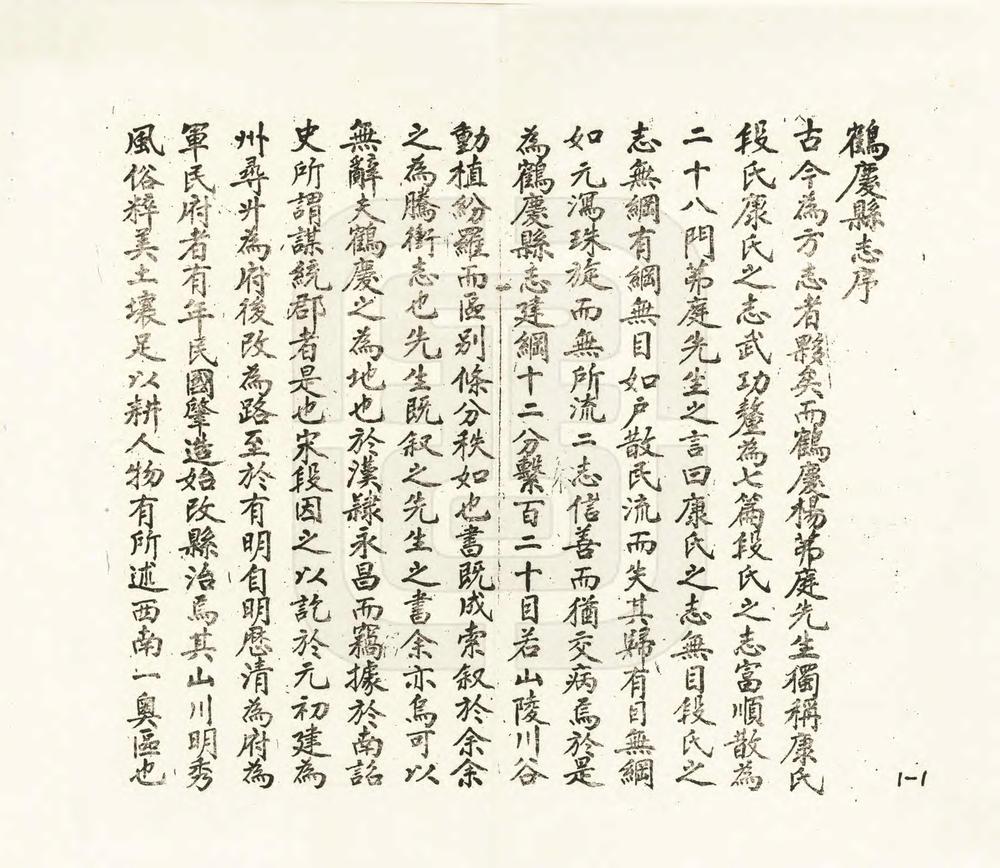 鶴慶縣志序
古今為方志者夥矣而鶴慶楊茀庭先生獨稱康氏
段氏康氏之志武功釐為七篇段氏之志富順散為
二十八門茀庭先生之言曰康氏之志無目段氏之
志無綱有綱無目如戶散民流而失其歸有目無綱
如元濁珠旋而無所流二志信善而猶交病焉於是
為鶴慶縣志建綱十二分繫百二十目若山陵川谷
動植紛羅而區別條分秩如也書既成索叙於余余
之為騰衝志也先生既叙之先生之書余亦烏可以
無辭夫鶴慶之為地也於漢隸永昌而竊據於南詔
史所謂謀統郡者是也宋段因之以訖於元初建為
州尋升為府後改為路至於有明自明歷清為府為
軍民府者有年民國肇造始改縣治焉其山川明秀
風俗粹美土壤足以耕人物有所述西南一奧區也
1-1